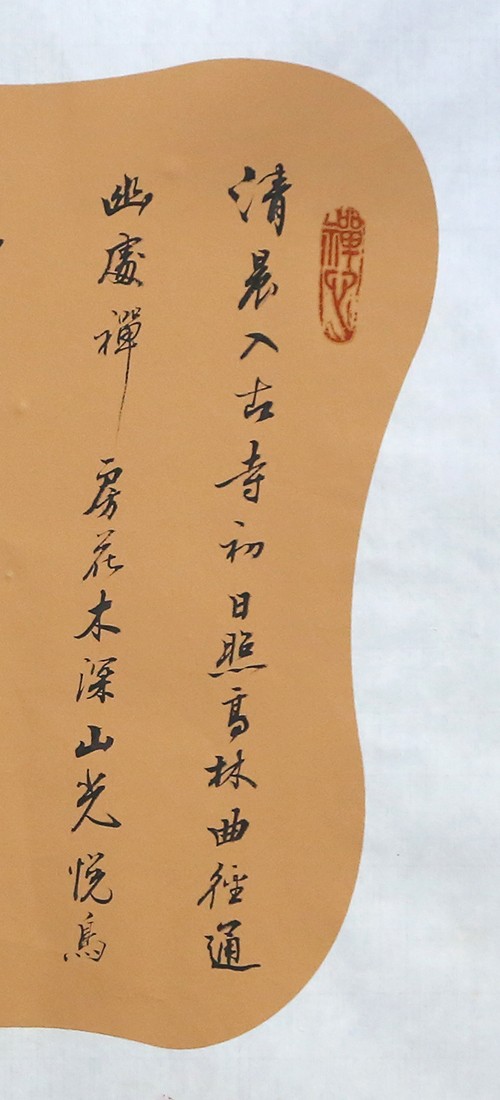 禪心
清晨入古寺初日照高林曲徑通
幽處禪房花木深山光悦鳥